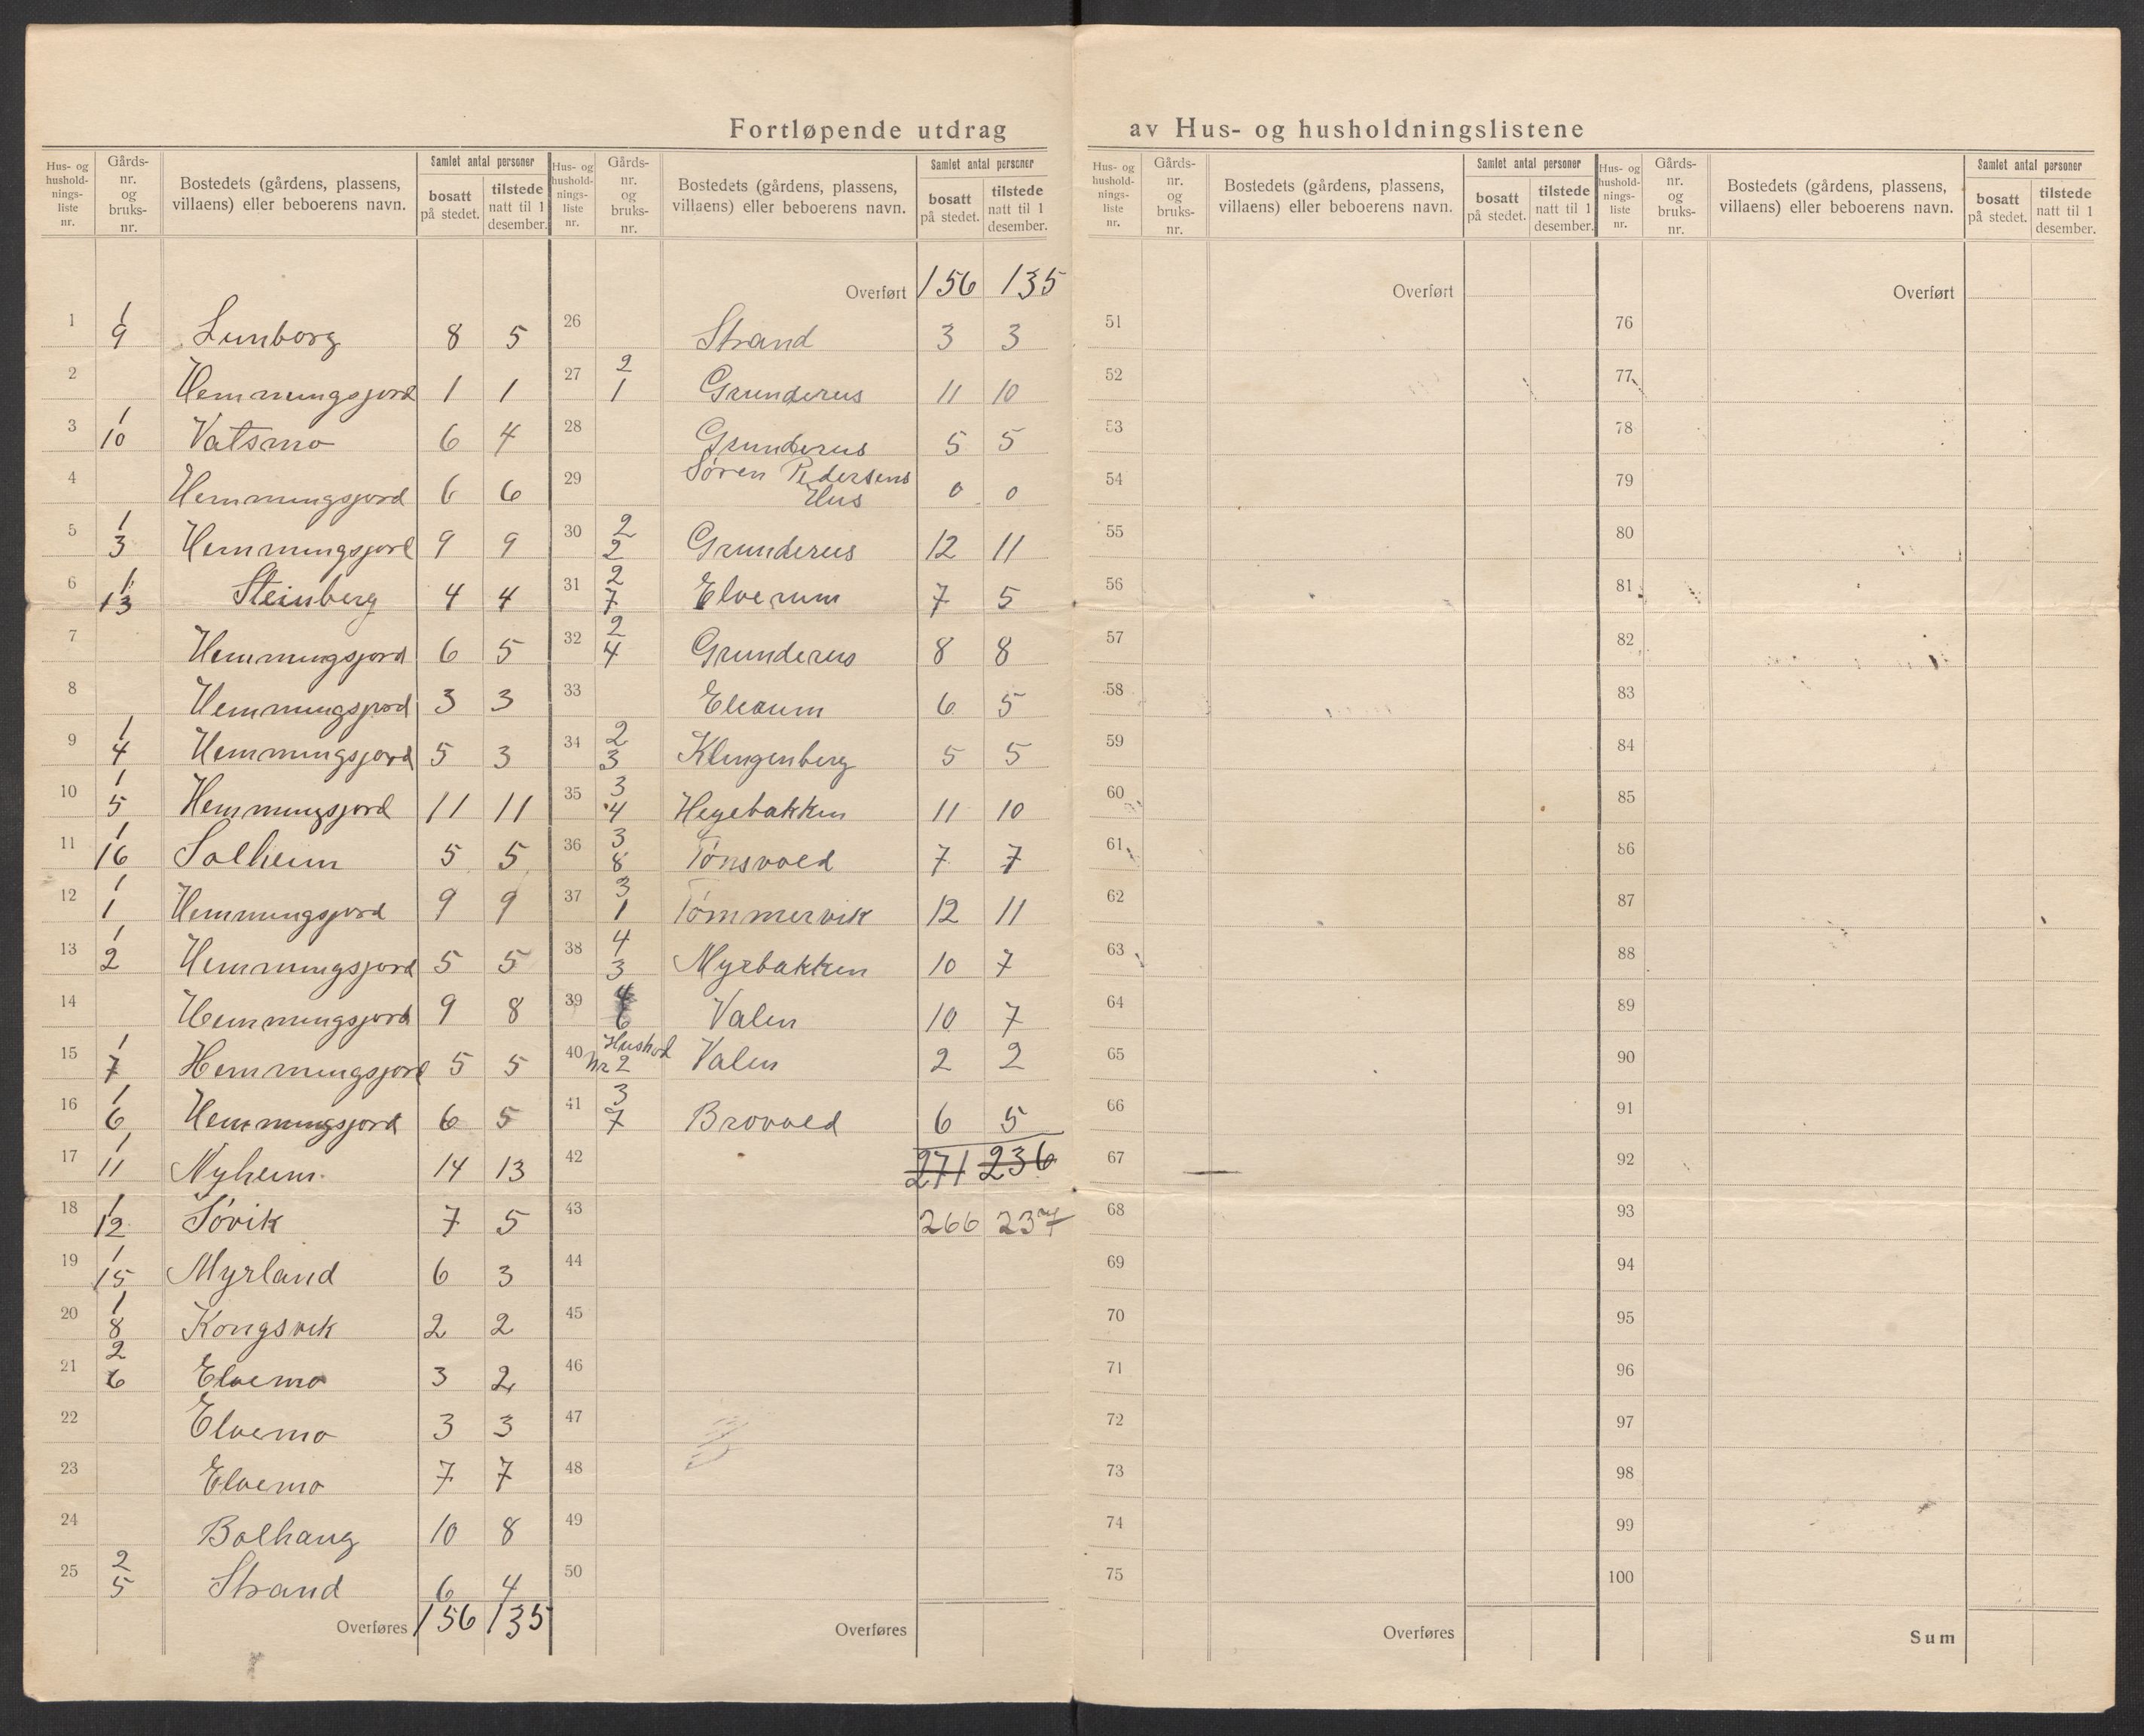 Fortløpende utdrag av Hus- og husholdningslistene
Hus- og hushold- nings- liste nr. Gårds- nr. og bruks- nr. Bostedets (gårdens, plassens, villaens) eller beboerens navn. Samlet antal personer bosatt på stedet. tilstede natt til 1 desember.
1 1/9 Lunborg 8 5
2 Hemmingsjord 1 1
3 1/10 Vatsmo 6 4
4 Hemmingsjord 6 6
5 1/3 Hemmingsjord 9 9
6 1/13 Steinberg 4 4
7 Hemmingsjord 6 5
8 Hemmingsjord 3 3
9 1/4 Hemmingsjord 5 3
10 1/5 Hemmingsjord 11 11
11 1/16 Solheim 5 5
12 1/1 Hemmingsjord 9 9
13 1/2 Hemmingsjord 5 5
14 Hemmingsjord 9 8
15 1/7 Hemmingsjord 5 5
16 1/6 Hemmingsjord 6 5
17 1/11 Nyheim. 14 13
18 1/12 Søvik 7 5
19 1/15 Myrland 6 3
20 1/8 Kongsvik 2 2
21 2/6 Elvemo 3 2
22 Elvemo 3 3
23 Elvemo 7 7
24 Bolhaug 10 8
25 2/5 Strand 6 4
Overføres 156 135
Hus- og hushold- nings- liste nr. Gårds- nr. og bruks- nr. Bostedets (gårdens, plassens, villaens) eller beboerens navn. Samlet antal personer bosatt på stedet. tilstede natt til 1 desember.
Overført 156 135
26 Strand 3 3
27 2/1 Grunderus 11 10
28 Grunderus 5 5
29 Søren Pedersens Hus 0 0
30 2/2 Grunderus 12 11
31 2/7 Elverum 7 5
32 2/4 Grunderus 8 8
33 6 5
34 2/3 Klingenberg 5 5
35 3/4 Hegebakken 11 10
36 3/8 Tønsvold 7 7
37 3/1 Tømmervik 12 11
38 4/3 Myrbakken 10 7
39 4/6 Valen 10 7
40 Nr 2 Valen 2 2
41 3/7 Brovold 6 5
42 271 236
43 266 237
44
45
46
47
48
49
50
Overføres
Hus- og hushold- nings- liste nr. Gårds- nr. og bruks- nr. Bostedets (gårdens, plassens, villaens) eller beboerens navn. Samlet antal personer bosatt på stedet. tilstede natt til 1 desember.
Overført
51
52
53
54
55
56
57
58
59
60
61
62
63
64
65
66
67
68
69
70
71
72
73
74
75
Overføres
Hus- og hushold- nings- liste nr. Gårds- nr. og bruks- nr. Bostedets (gårdens, plassens, villaens) eller beboerens navn. Samlet antal personer bosatt på stedet. tilstede natt til 1 desember.
Overført
76
77
78
79
80
81
82
83
84
85
86
87
88
89
90
91
92
93
94
95
96
97
98
99
100
Sum